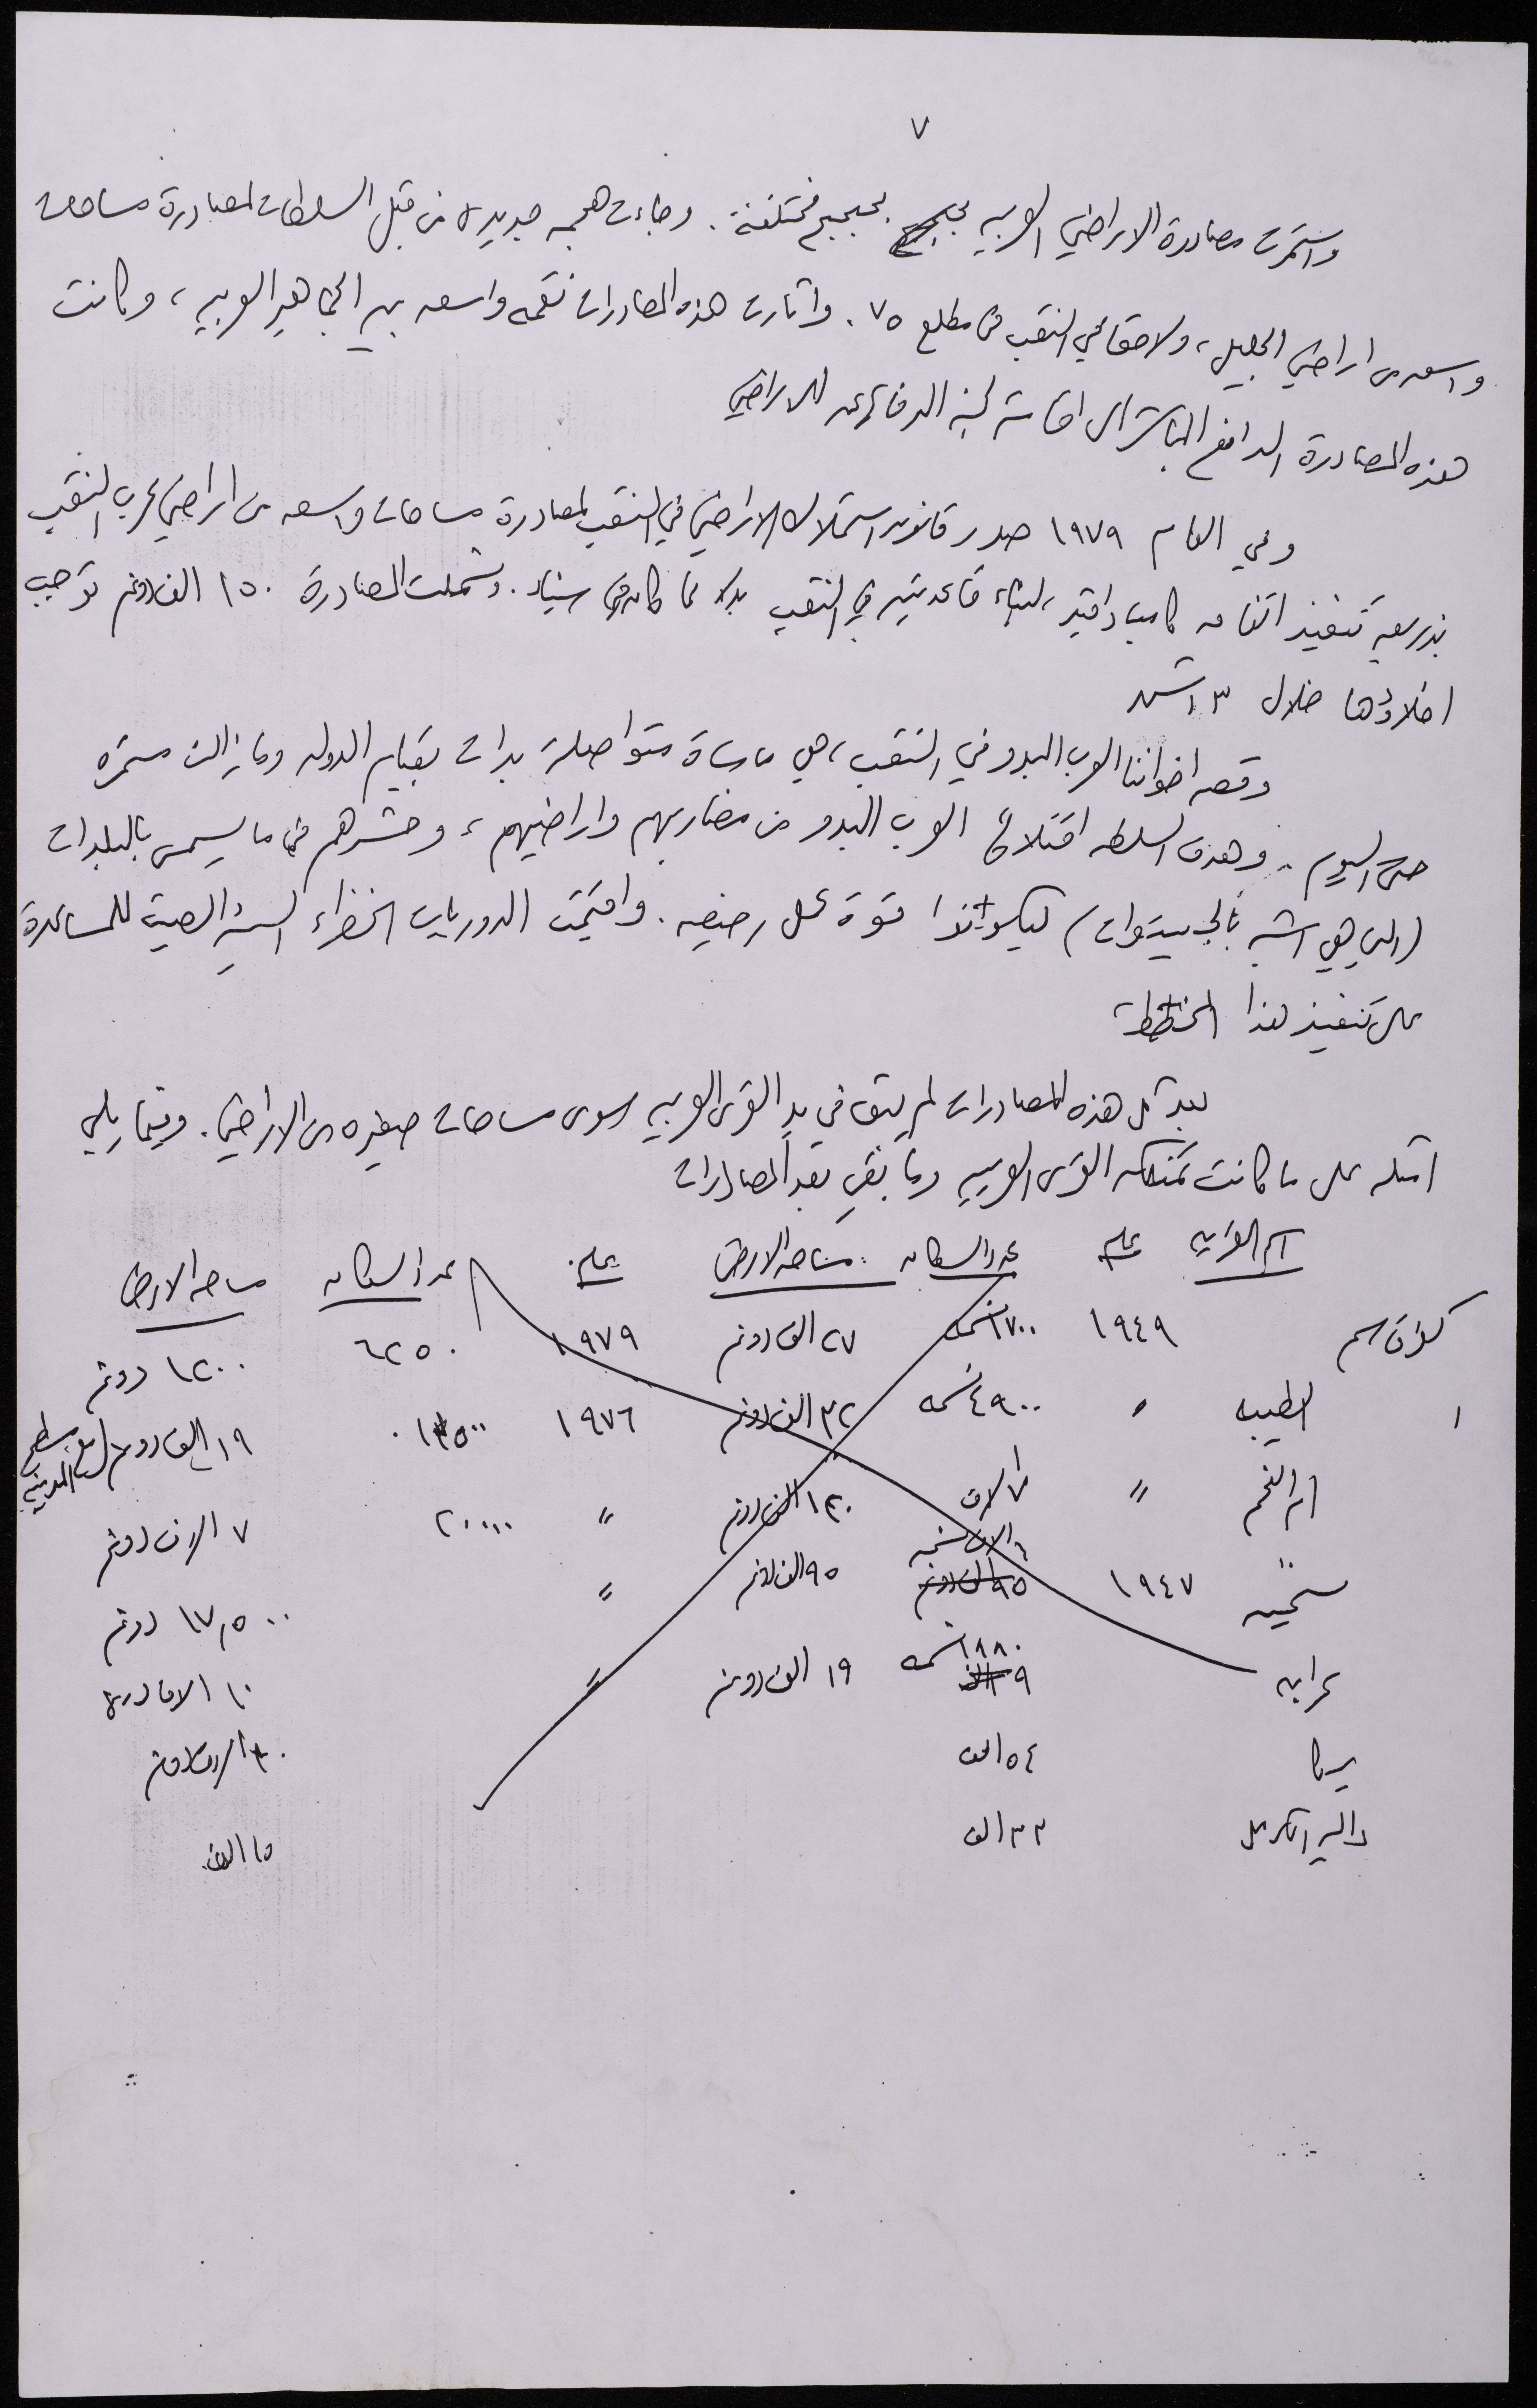 ٧
واستمرت مصادرة الاراضي العربيه بحجج مختلفة. وجاءت هجمه جديدة من قبل السلطات لمصادرة مساحات
واسعه من اراضي الجليل، ولاحقا في النقب في مطلع ٧٥. واثارت هذه المصادرات نقمه واسعه بين الجماهير العربيه، وكانت
هذه المصادرة الدافع المباشر الى اقامة لجنة الدفاع عن الاراضي
وفي العام ١٩٧٩ صدر قانون استملاك الاراضي في النقب لمصادرة مساحات واسعه من اراضي عرب النقب
بذريعه تنفيذ اتفاقيه كامب دافيد، لبناء قاعدتين في النقب بدلا مما كان في سيناء. وشملت المصادرة ١٥٠ الف دونم توجب
اخلاؤها خلال ٣ اشهر
وقصه اخواننا العرب البدو في النقب، هي ماساة متواصلة بدات بقيام الدوله وما زالت مستمره
حتى اليوم. وهدف السلطه اقتلاع العرب البدو من مضاربهم واراضيهم، وحشرهم في ما يسمى بالبلدات
(التي هي اشبه بالجيتوات) ليكونوا قوة عمل رخيصه. واقيمت الدوريات الخضراء السيئه الصيت للمساعدة
على تنفيذ هذا المخطط
بعد كل هذه المصادرات لم يتبق في يد القرى العربيه سوى مساحات صغيره من الاراضي. وفيما يلي
امثله على ما كانت تمتلكه القرى العربيه وما بقي بعد المصادرات
اسم القريه عام عدد السكان مساحه الارض عام عدد السكان مساحه الارض
كفر قاسم ١٩٤٩ ١٧٠٠ نسمه ٢٧ الف دونم ١٩٧٩ ٦٢٥٠ ١٢٠٠ دونم
الطيبه " ٤٩٠٠ نسمه ٣٢ الف دونم ١٩٧٦ ١٩ الف دونم
ام الفحم " ٧ الاف ١٣٠ الف دونم " ٢٠٠٠٠ ٧ الاف دونم
سخنين ١٩٤٧ الاف نسمه ٩٥ الف دونم ٩٥ الف دونم " ١٧,٥٠٠ دونم
عرابه ١٨٨٠ نسمه ١٩ الف دونم " ١٠ الاف دونم
يركا ٥٤ الف
دالية الكرمل ٣٣ الف ١٥ الف